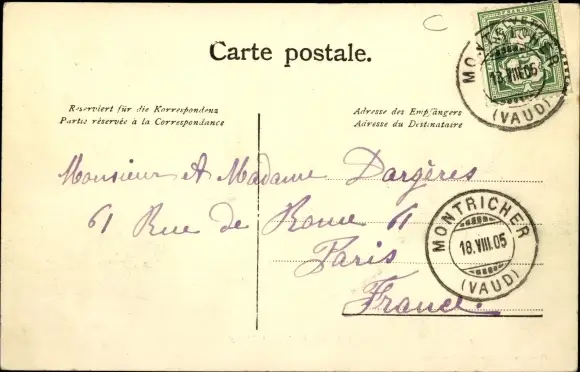 Carte postale.
Reserviert für die Korrespondenz
Partie réservée à la Correspondance
Adresse des Empfängers
Adresse du Destinataire
Monsieur et Madame Dargères
61 Rue de Rome 61
Paris
France.
MONTRICHER
18.VIII.05
(VAUD)
MONTRICHER
18.VIII.05
(VAUD)
FRANCO